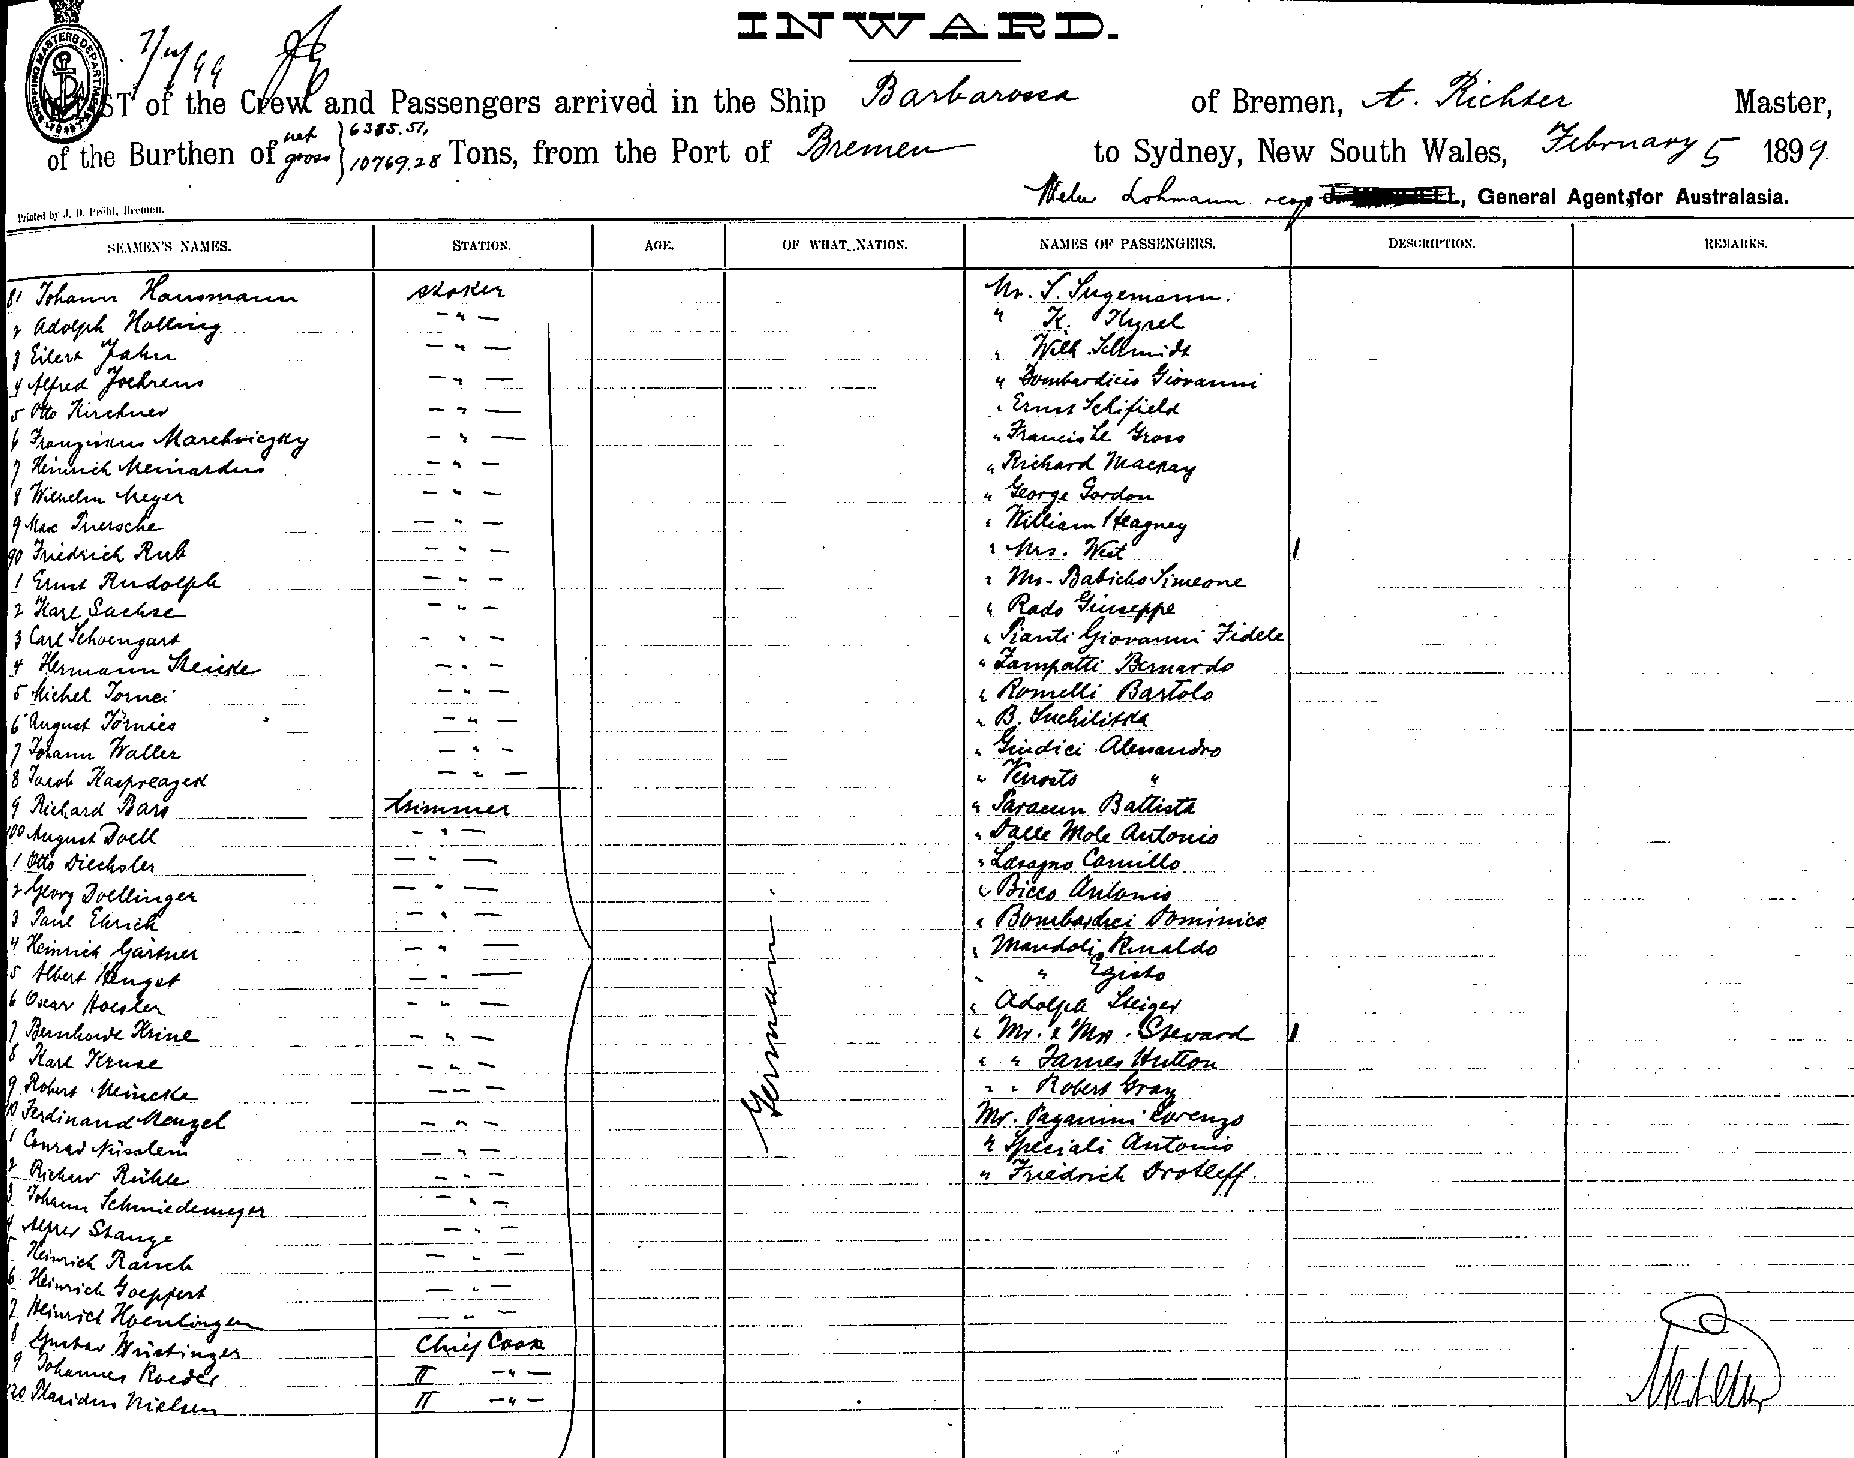 INWARD.
LIST of the Crew and Passengers arrived in the Ship Barbarossa of Bremen, A. Richter Master,
of the Burthen of net 6385.51, gross 10769.28 Tons, from the Port of Bremen to Sydney, New South Wales, February 5 1899.
Lohmann General Agents for Australasia.
Printed by J. D. Pröhl, Bremen.
SEAMEN'S NAMES. STATION. AGE. OF WHAT NATION. NAMES OF PASSENGERS. DESCRIPTION. REMARKS.
81 Johann Hausmann stoker Mr. S. Sugemann.
2 Adolph Holling - " - " K. Kyrel
3 Eilert Jahn - " - " Wilh Schmidt
4 Alfred Joehrens - " - " Bombardieis Giovanni
5 Otto Kirchner - " - " Ernst Schifield
6 Franziskus Marchwiczky - " - " Francis Le Gross
7 Heinrich Meinardus - " - " Richard Mackay
8 Wilhelm Meyer - " - " George Gordon
9 Max Puersche - " - " William Heagney
90 Friedrich Rub - " - " Mrs. West
1 Ernst Rudolph - " - " Mr. Babichs Simeone
2 Karl Sachse - " - " Rado Giuseppe
3 Carl Schoengart - " - " Pianti Giovanni Fidele
4 Hermann Steicke - " - " Zampatti Bernardo
5 Michel Tornei - " - " Romelli Bartolo
6 August Törnies - " - " B. Suchilitka
7 Johann Waller - " - " Giudici Alessandro
8 Jacob Kaspreazek - " - " Venosto "
9 Richard Bars trimmer " Paracun Battista
100 August Doell - " - " Dalle Mole Antonio
1 Otto Diechsler - " - " Lasagno Camillo
2 Georg Doellinger - " - " Bicco Antonio
3 Paul Ehrich - " - " Bombardiei Dominico
4 Heinrich Gärtner - " - " Mandoli Rinaldo
5 Albert Hengst - " - " " Egisto
6 Oscar Hoesler - " - " Adolph Steiger
7 Bernhard Krine - " - " Mr. & Mrs. Steward
8 Karl Kruse - " - " " James Hutton
9 Robert Meincke - " - " " Robert Gray
10 Ferdinand Menzel - " - Mr. Paganini Lorenzo
1 Conrad Nisslein - " - " Speciali Antonio
2 Richard Rühle - " - " Friedrich Drotleff.
3 Johann Schmiedemeyer - " -
4 Alfred Stange - " -
Heinrich Rasch - " -
6 Heinrich Goeppert - " -
7 Heinrich Hoentingen - " -
8 Gustav Wüstinger Chief Cook
9 Johannes Roeder II - " -
120 Plasidus Nielsen II - " -
German